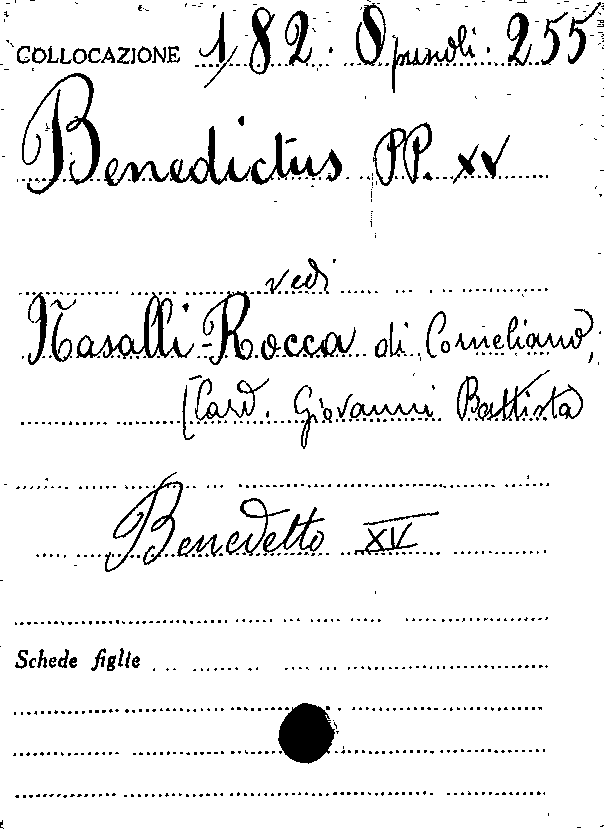 COLLOCAZIONE 1/82. Opuscoli. 255
Benedictus PP. XV
vedi
Nasalli-Rocca di Corneliano,
(Card. Giovanni Battista
Benedetto XV
Schede figlie